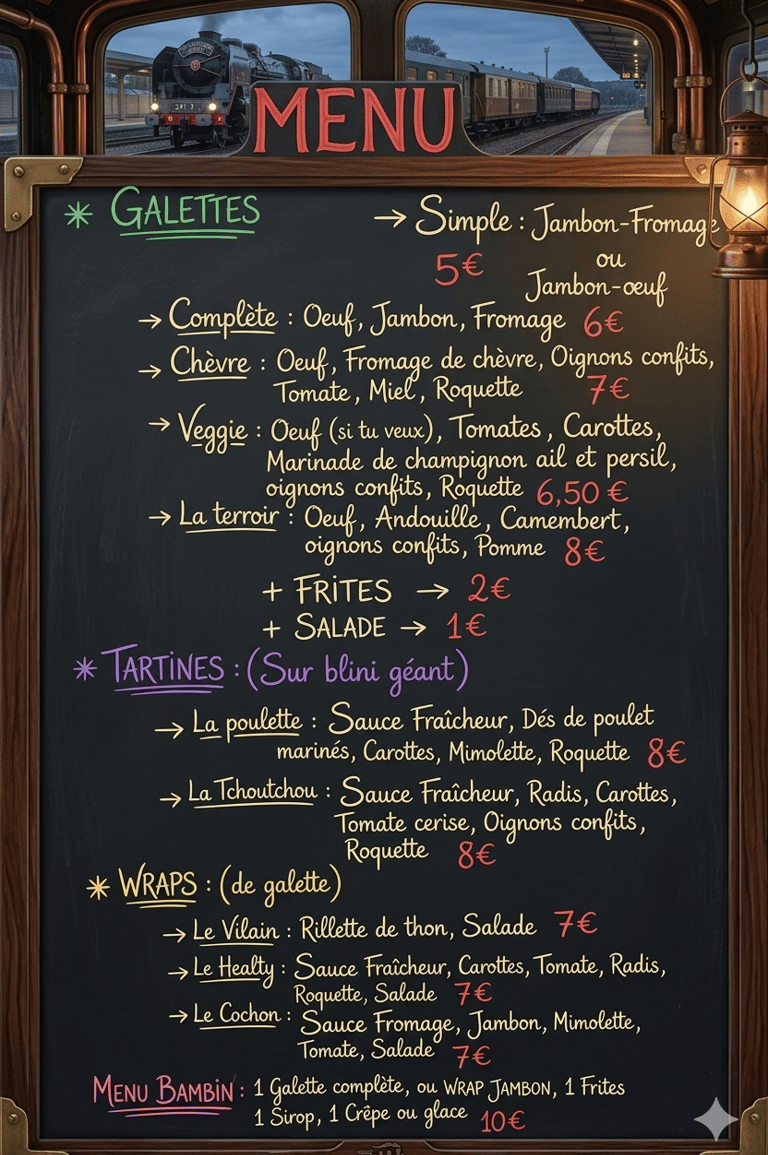 MENU
* GALETTES → Simple : Jambon-Fromage
5€ ou
Jambon-œuf
→ Complète : Oeuf, Jambon, Fromage 6€
→ Chèvre : Oeuf, Fromage de chèvre, Oignons confits,
Tomate, Miel, Roquette 7€
→ Veggie : Oeuf (si tu veux), Tomates, Carottes,
Marinade de champignon ail et persil,
oignons confits, Roquette 6,50 €
→ La terroir : Oeuf, Andouille, Camembert,
oignons confits, Pomme 8€
+ FRITES → 2€
+ SALADE → 1€
* TARTINES : (Sur blini géant)
→ La poulette : Sauce Fraîcheur, Dés de poulet
marinés, Carottes, Mimolette, Roquette 8€
→ La Tchoutchou : Sauce Fraîcheur, Radis, Carottes,
Tomate cerise, Oignons confits,
Roquette 8€
* WRAPS : (de galette)
→ Le Vilain : Rillette de thon, Salade 7€
→ Le Healty : Sauce Fraîcheur, Carottes, Tomate, Radis,
Roquette, Salade 7€
→ Le Cochon : Sauce Fromage, Jambon, Mimolette,
Tomate, Salade 7€
MENU BAMBIN : 1 Galette complète, ou WRAP JAMBON, 1 Frites
1 Sirop, 1 Crêpe ou glace 10€